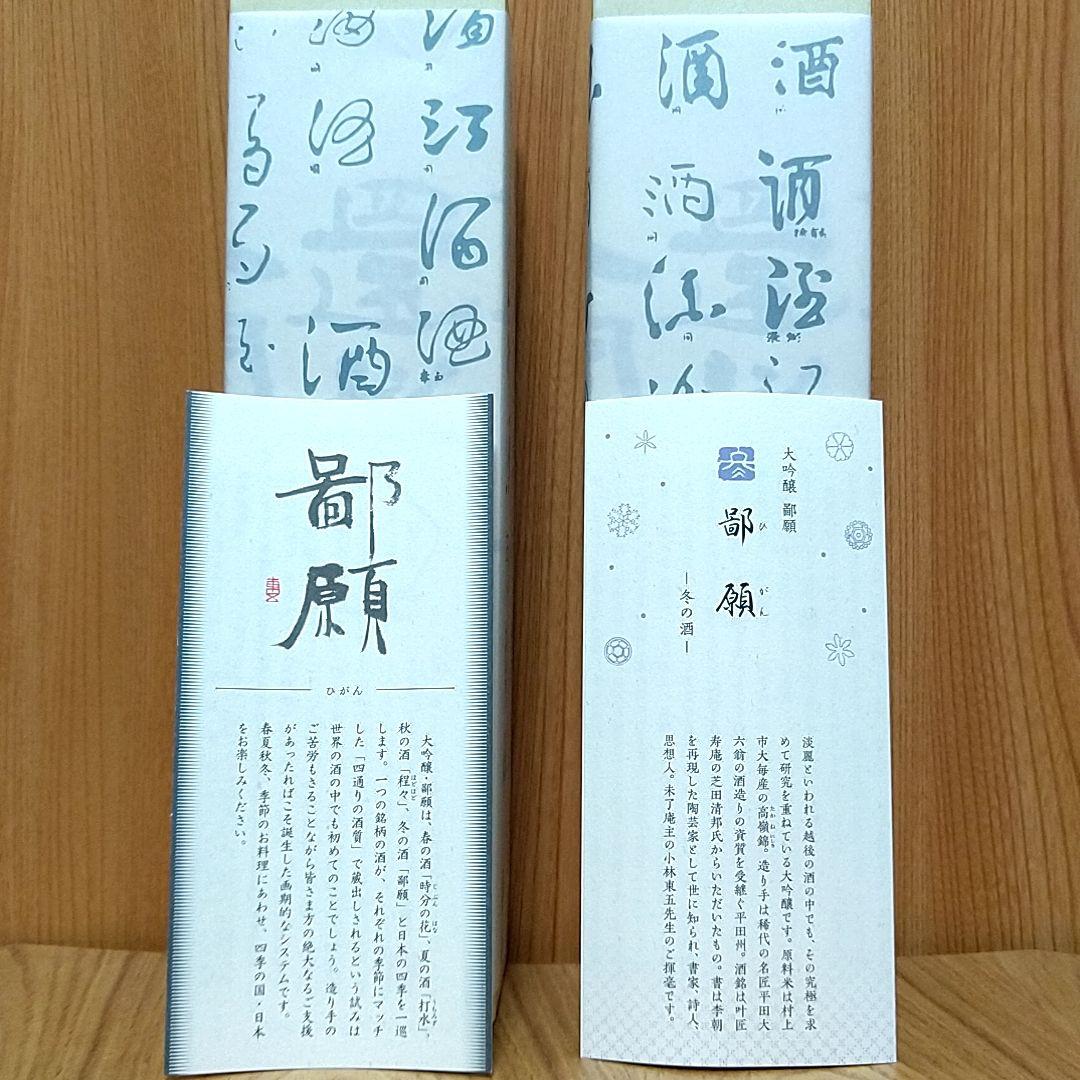 鄙
願
ひがん
大吟醸・鄙願は、春の酒「時分の花」、夏の酒「打水」、
秋の酒「程々」、冬の酒「鄙願」と日本の四季を一巡
します。一つの銘柄の酒が、それぞれの季節にマッチ
した「四通りの酒質」で蔵出しされるという試みは
世界の酒の中でも初めてのことでしょう。造り手の
ご苦労もさることながら皆さま方の絶大なるご支援
があったればこそ誕生した画期的なシステムです。
春夏秋冬、季節のお料理にあわせ、四季の国・日本
をお楽しみください。
大吟醸 鄙願
冬
鄙願
ひがん
―冬の酒―
淡麗といわれる越後の酒の中でも、その究極を求
めて研究を重ねている大吟醸です。原料米は村上
市大毎産の高嶺錦。造り手は稀代の名匠平田大
六翁の酒造りの資質を受継ぐ平田州。酒銘は叶匠
寿庵の芝田清邦氏からいただいたもの。書は李朝
を再現した陶芸家として世に知られ、書家、詩人、
思想人。未了庵主の小林東五先生のご揮毫です。
酒
酒
酒
酒
酒
酒
酒